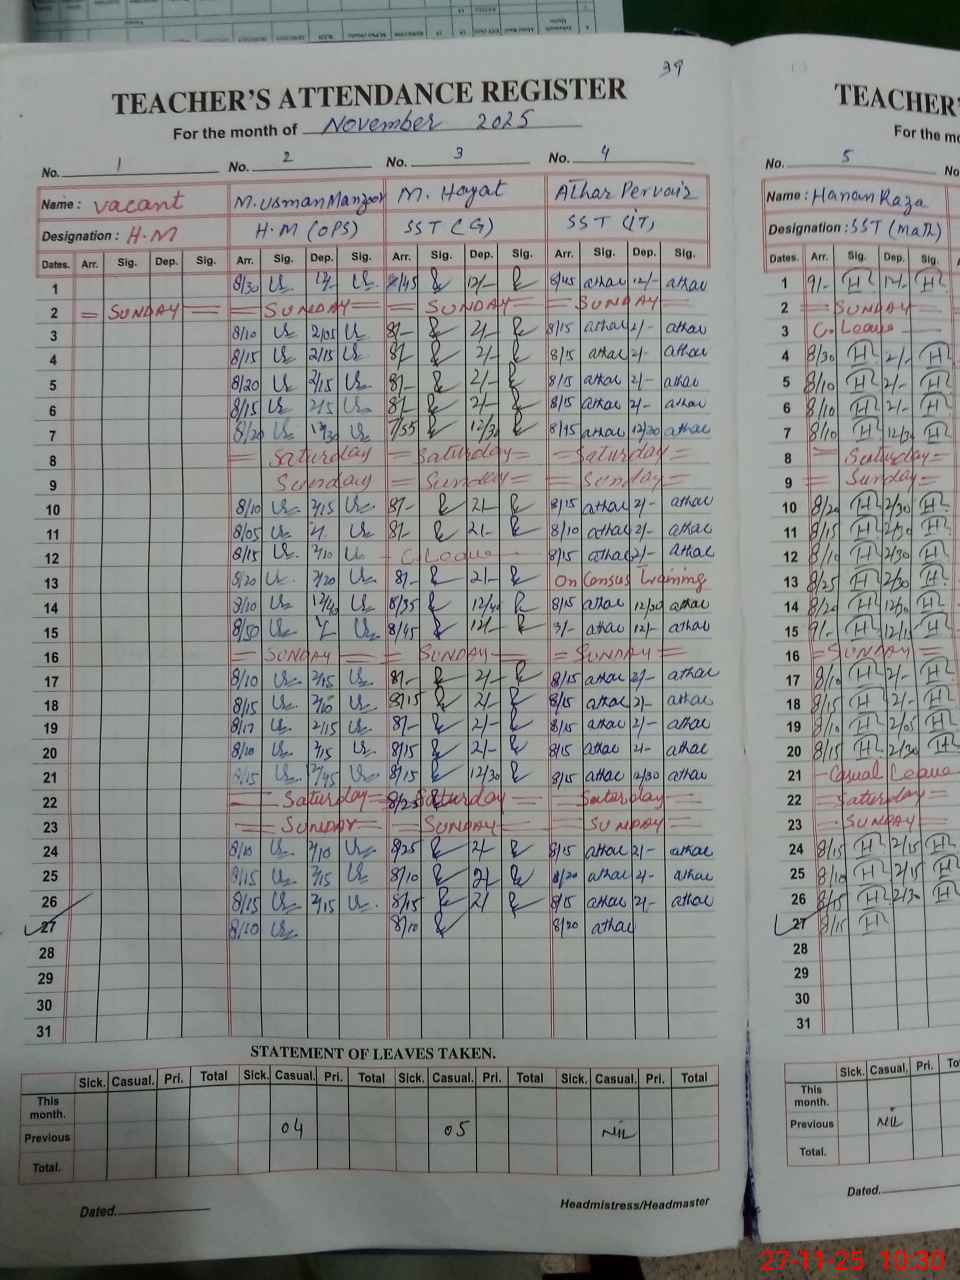 39
TEACHER'S ATTENDANCE REGISTER
For the month of November 2025
No. 1 No. 2 No. 3 No. 4
Name : Vacant M. Usman Manzoor M. Hayat Athar Pervaiz
Designation : H.M H.M (OPS) SST (G) SST (IT)
Dates. Arr. Sig. Dep. Sig. Arr. Sig. Dep. Sig. Arr. Sig. Dep. Sig. Arr. Sig. Dep. Sig.
1 8/30 12/- 8/45 12/- 8/45 athar 12/- athar
2 = SUNDAY = = SUNDAY = = SUNDAY = = SUNDAY =
3 8/10 2/05 8/- 2/- 8/15 athar 2/- athar
4 8/15 2/15 8/- 2/- 8/15 athar 2/- athar
5 8/20 2/15 8/- 2/- 8/15 athar 2/- athar
6 8/15 2/5 8/- 2/- 8/15 athar 2/- athar
7 8/20 12/30 7/55 12/30 8/15 athar 12/30 athar
8 = Saturday = Saturday = = Saturday =
9 Sunday = Sunday = = Sunday =
10 8/10 2/15 8/- 2/- 8/15 athar 2/- athar
11 8/05 8/- 2/- 8/10 athar 2/- athar
12 8/15 2/10 - C. Leave - 8/15 athar 2/- athar
13 8/20 2/20 8/- 2/- On Census Training
14 8/10 12/40 8/35 12/40 8/15 athar 12/30 athar
15 8/50 8/45 12/- athar 12/- athar
16 = SUNDAY = = SUNDAY = = SUNDAY =
17 8/10 2/15 8/- 2/- 8/15 athar 2/- athar
18 8/15 2/10 8/15 2/- 8/15 athar 2/- athar
19 8/17 2/15 8/- 2/- 8/15 athar 2/- athar
20 8/10 2/15 8/15 2/- 8/15 athar 2/- athar
21 8/15 8/15 12/30 8/15 athar 12/30 athar
22 = Saturday = 8/25 Saturday = Saturday =
23 = SUNDAY = = SUNDAY = SUNDAY =
24 8/10 2/10 8/25 2/- 8/15 athar 2/- athar
25 8/15 2/15 8/10 2/- 8/20 athar 2/- athar
26 8/15 2/15 8/15 2/- 8/15 athar 2/- athar
27 8/10 8/10 8/20 athar
28
29
30
31
STATEMENT OF LEAVES TAKEN.
Sick. Casual. Pri. Total Sick. Casual. Pri. Total Sick. Casual. Pri. Total Sick. Casual. Pri. Total
This month.
Previous 04 05 NIL
Total.
Dated. Headmistress/Headmaster
TEACHER'
For the mo
No. 5 No
Name : Hanan Raza
Designation : SST (Math)
Dates. Arr. Sig. Dep. Sig.
1 9/- H 12/- H
2 = SUNDAY =
3 C. Leave
4 8/30 H 2/- H
5 8/10 H 2/- H
6 8/10 H 2/- H
7 8/10 H 12/30 H
8 = Saturday =
9 = Sunday =
10 8/20 H 2/30 H
11 8/15 H 2/30 H
12 8/10 H 2/30 H
13 8/25 H 2/30 H
14 8/20 H 12/30 H
15 9/- H 12/15 H
16 = SUNDAY =
17 8/10 H 2/- H
18 8/15 H 2/- H
19 8/10 H 2/05 H
20 8/15 H 2/30 H
21 - Casual Leave
22 = Saturday =
23 = SUNDAY =
24 8/15 H 2/15 H
25 8/10 H 2/15 H
26 8/15 H 2/30 H
27 8/15 H
28
29
30
31
Sick. Casual. Pri. To
This month.
Previous NIL
Total.
Dated.
27-11-25 10:30